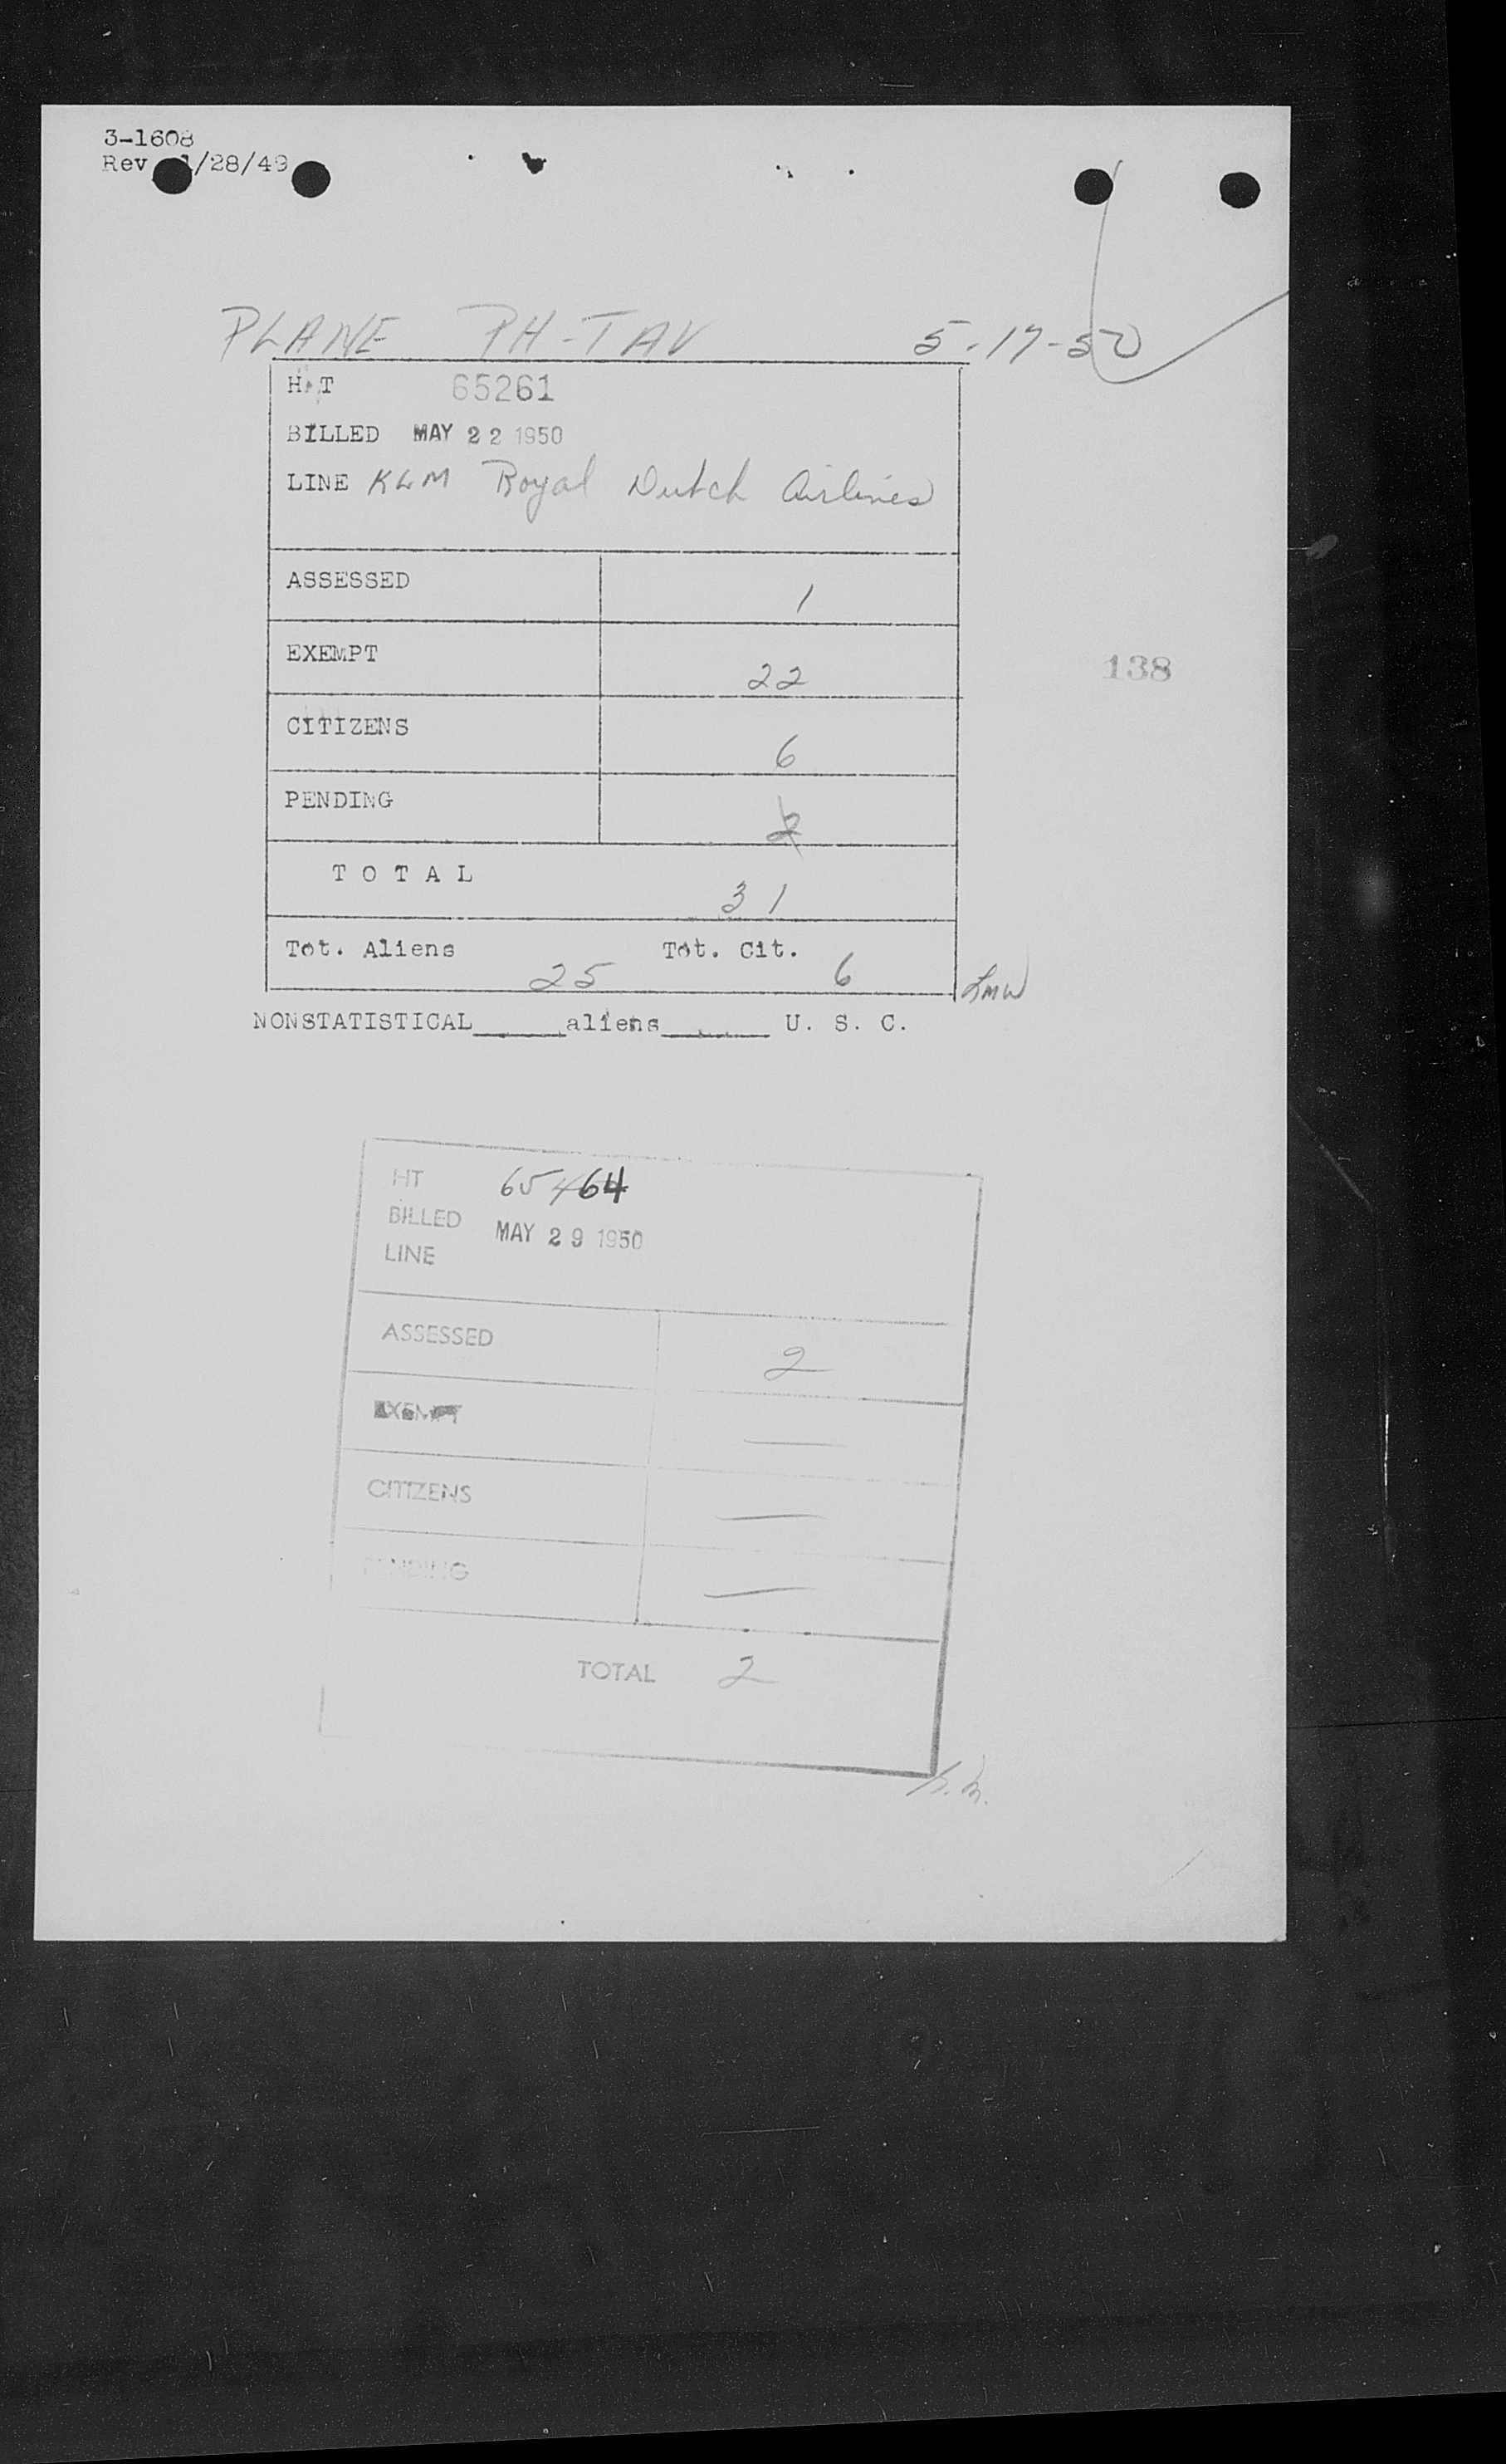 3-1608
Rev 1/28/49
PLANE PH-TAV 5-17-50
H.T 65261
BILLED MAY 22 1950
LINE KLM Royal Dutch Airlines
ASSESSED 1
EXEMPT 22
138
CITIZENS 6
PENDING 2
TOTAL 31
Tot. Aliens 25 Tot. Cit. 6
LMW
NONSTATISTICAL aliens U. S. C.
HT 65464
BILLED MAY 29 1950
LINE
ASSESSED 2
EXEMPT —
CITIZENS —
PENDING —
TOTAL 2